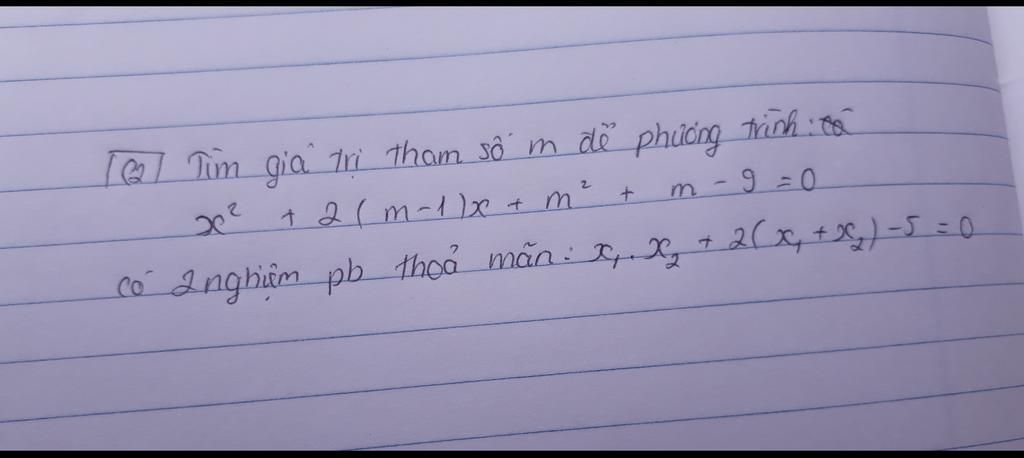 C2 Tìm giá trị tham số m để phương trình: có
x² + 2(m-1)x + m² + m - 9 = 0
có 2 nghiệm pb thoả mãn: x₁.x₂ + 2(x₁+x₂)-5 = 0